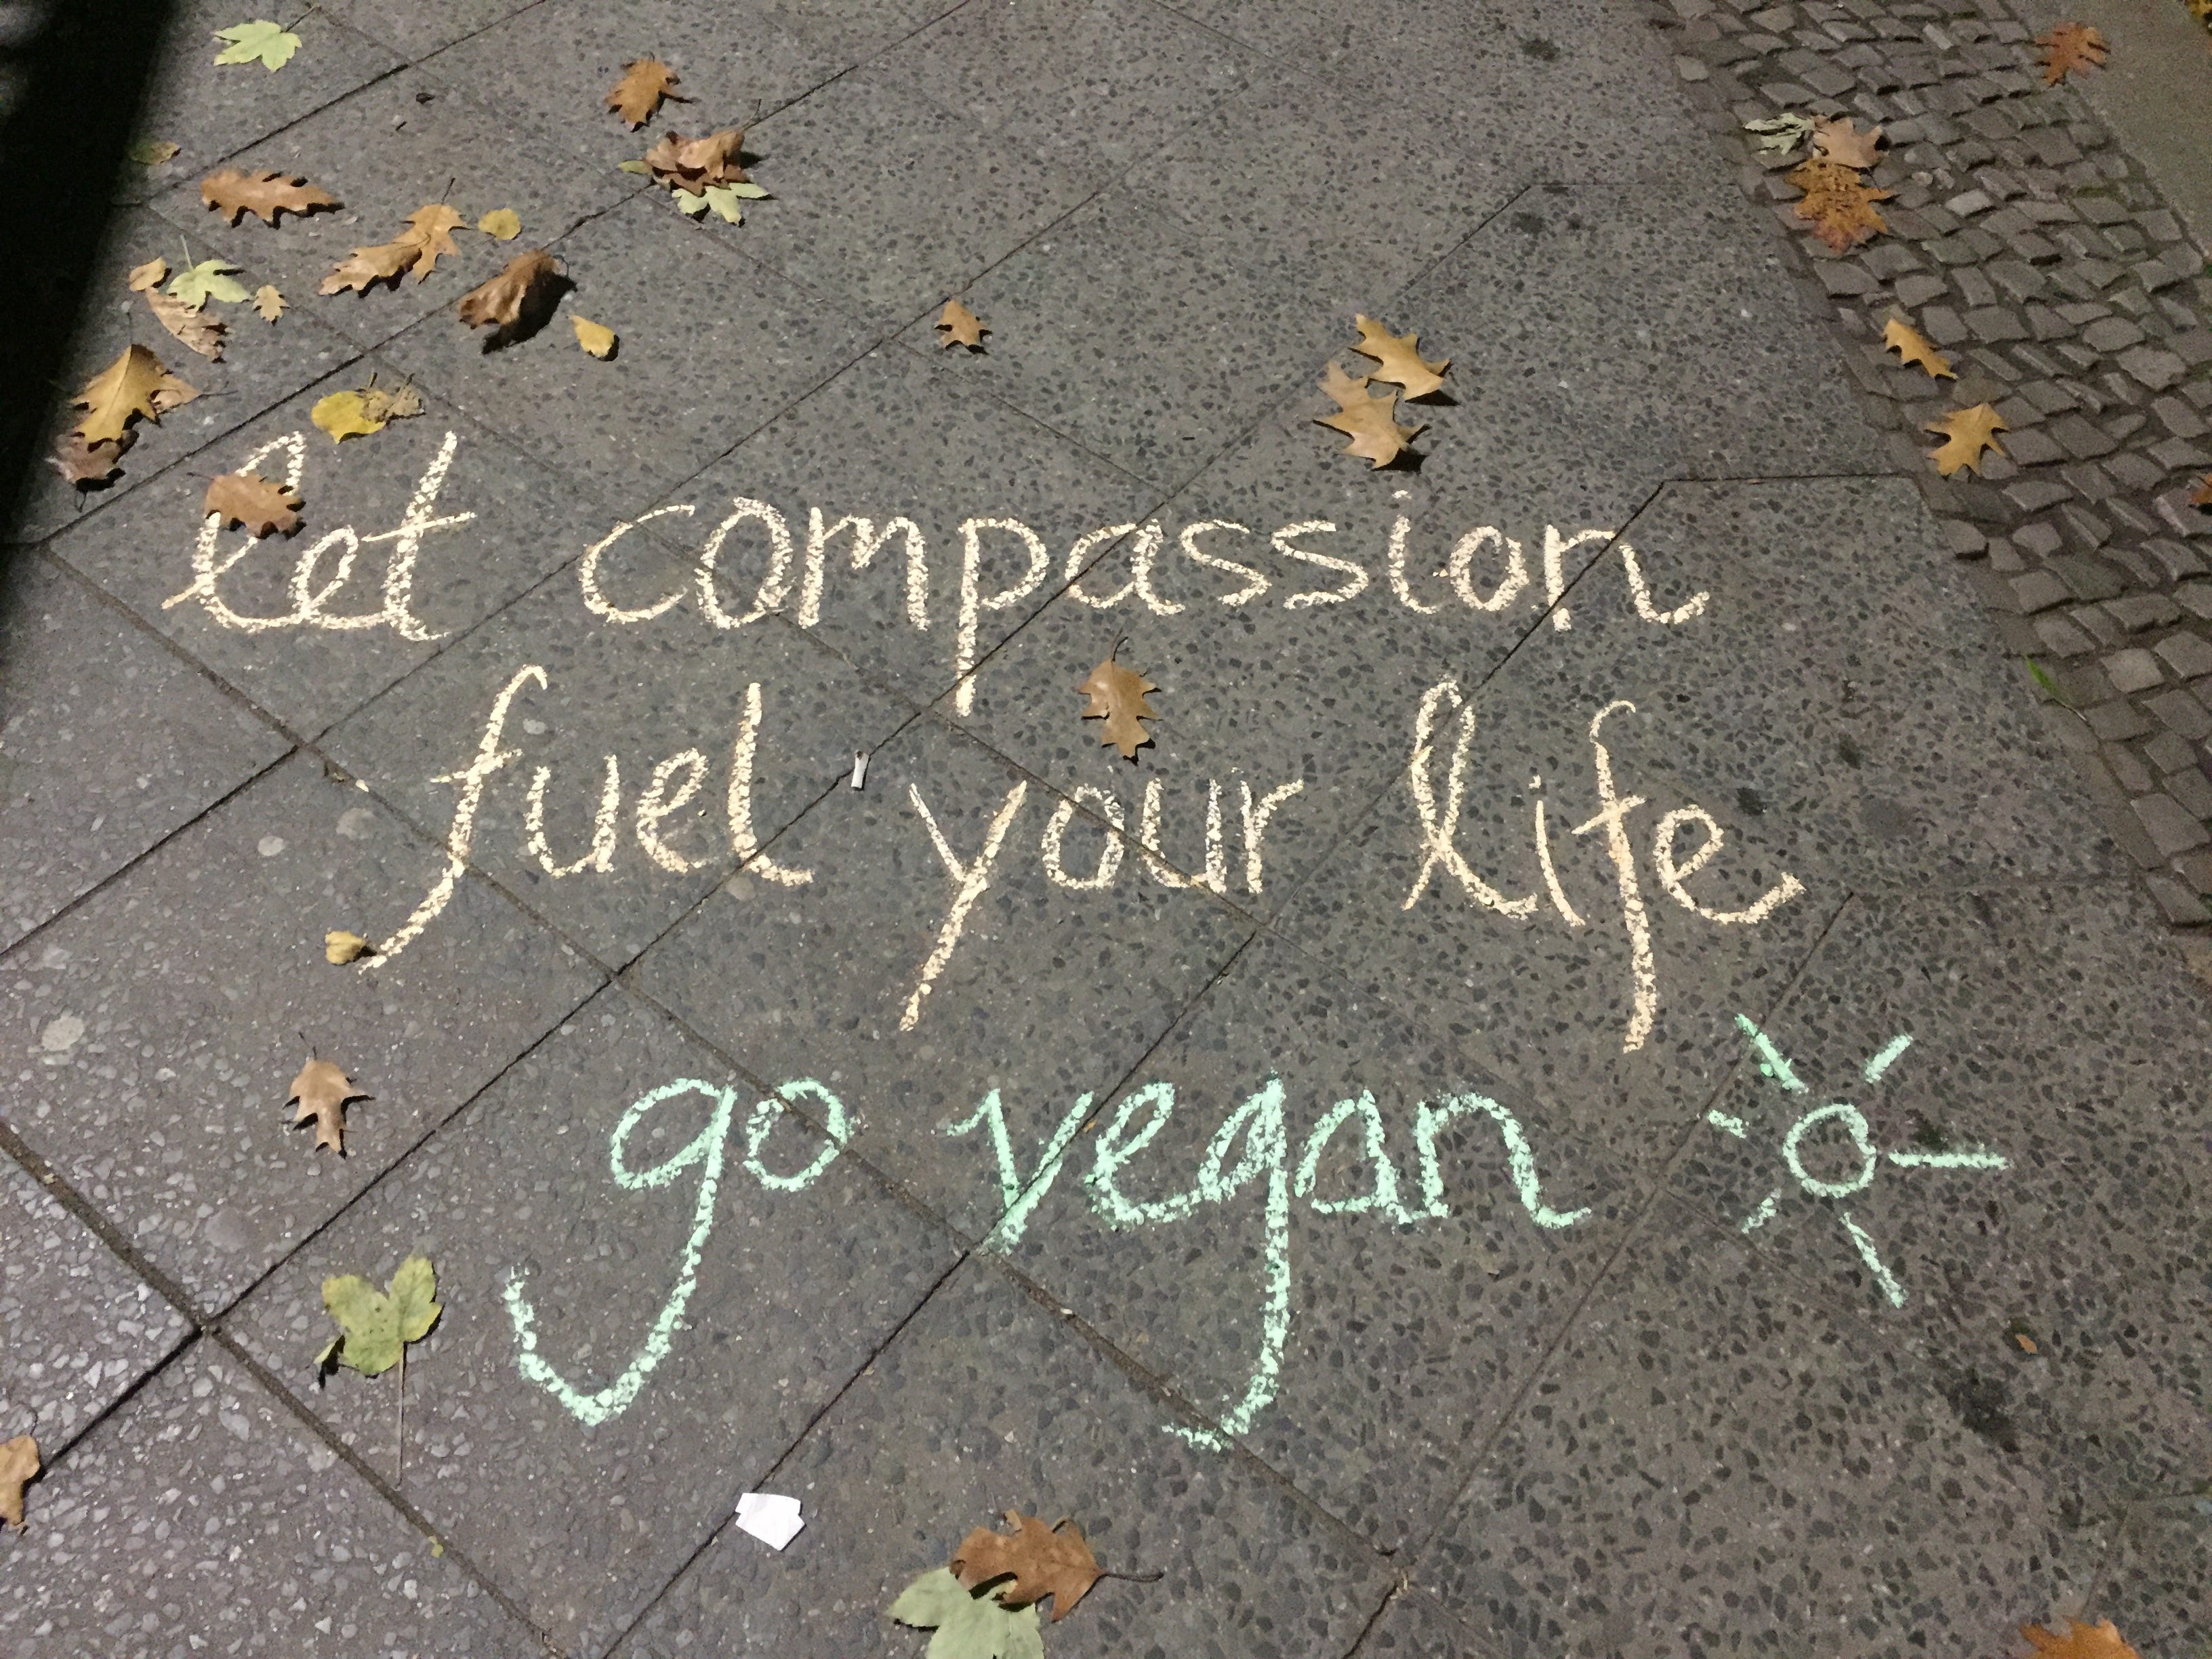 let compassion
fuel your life
go vegan